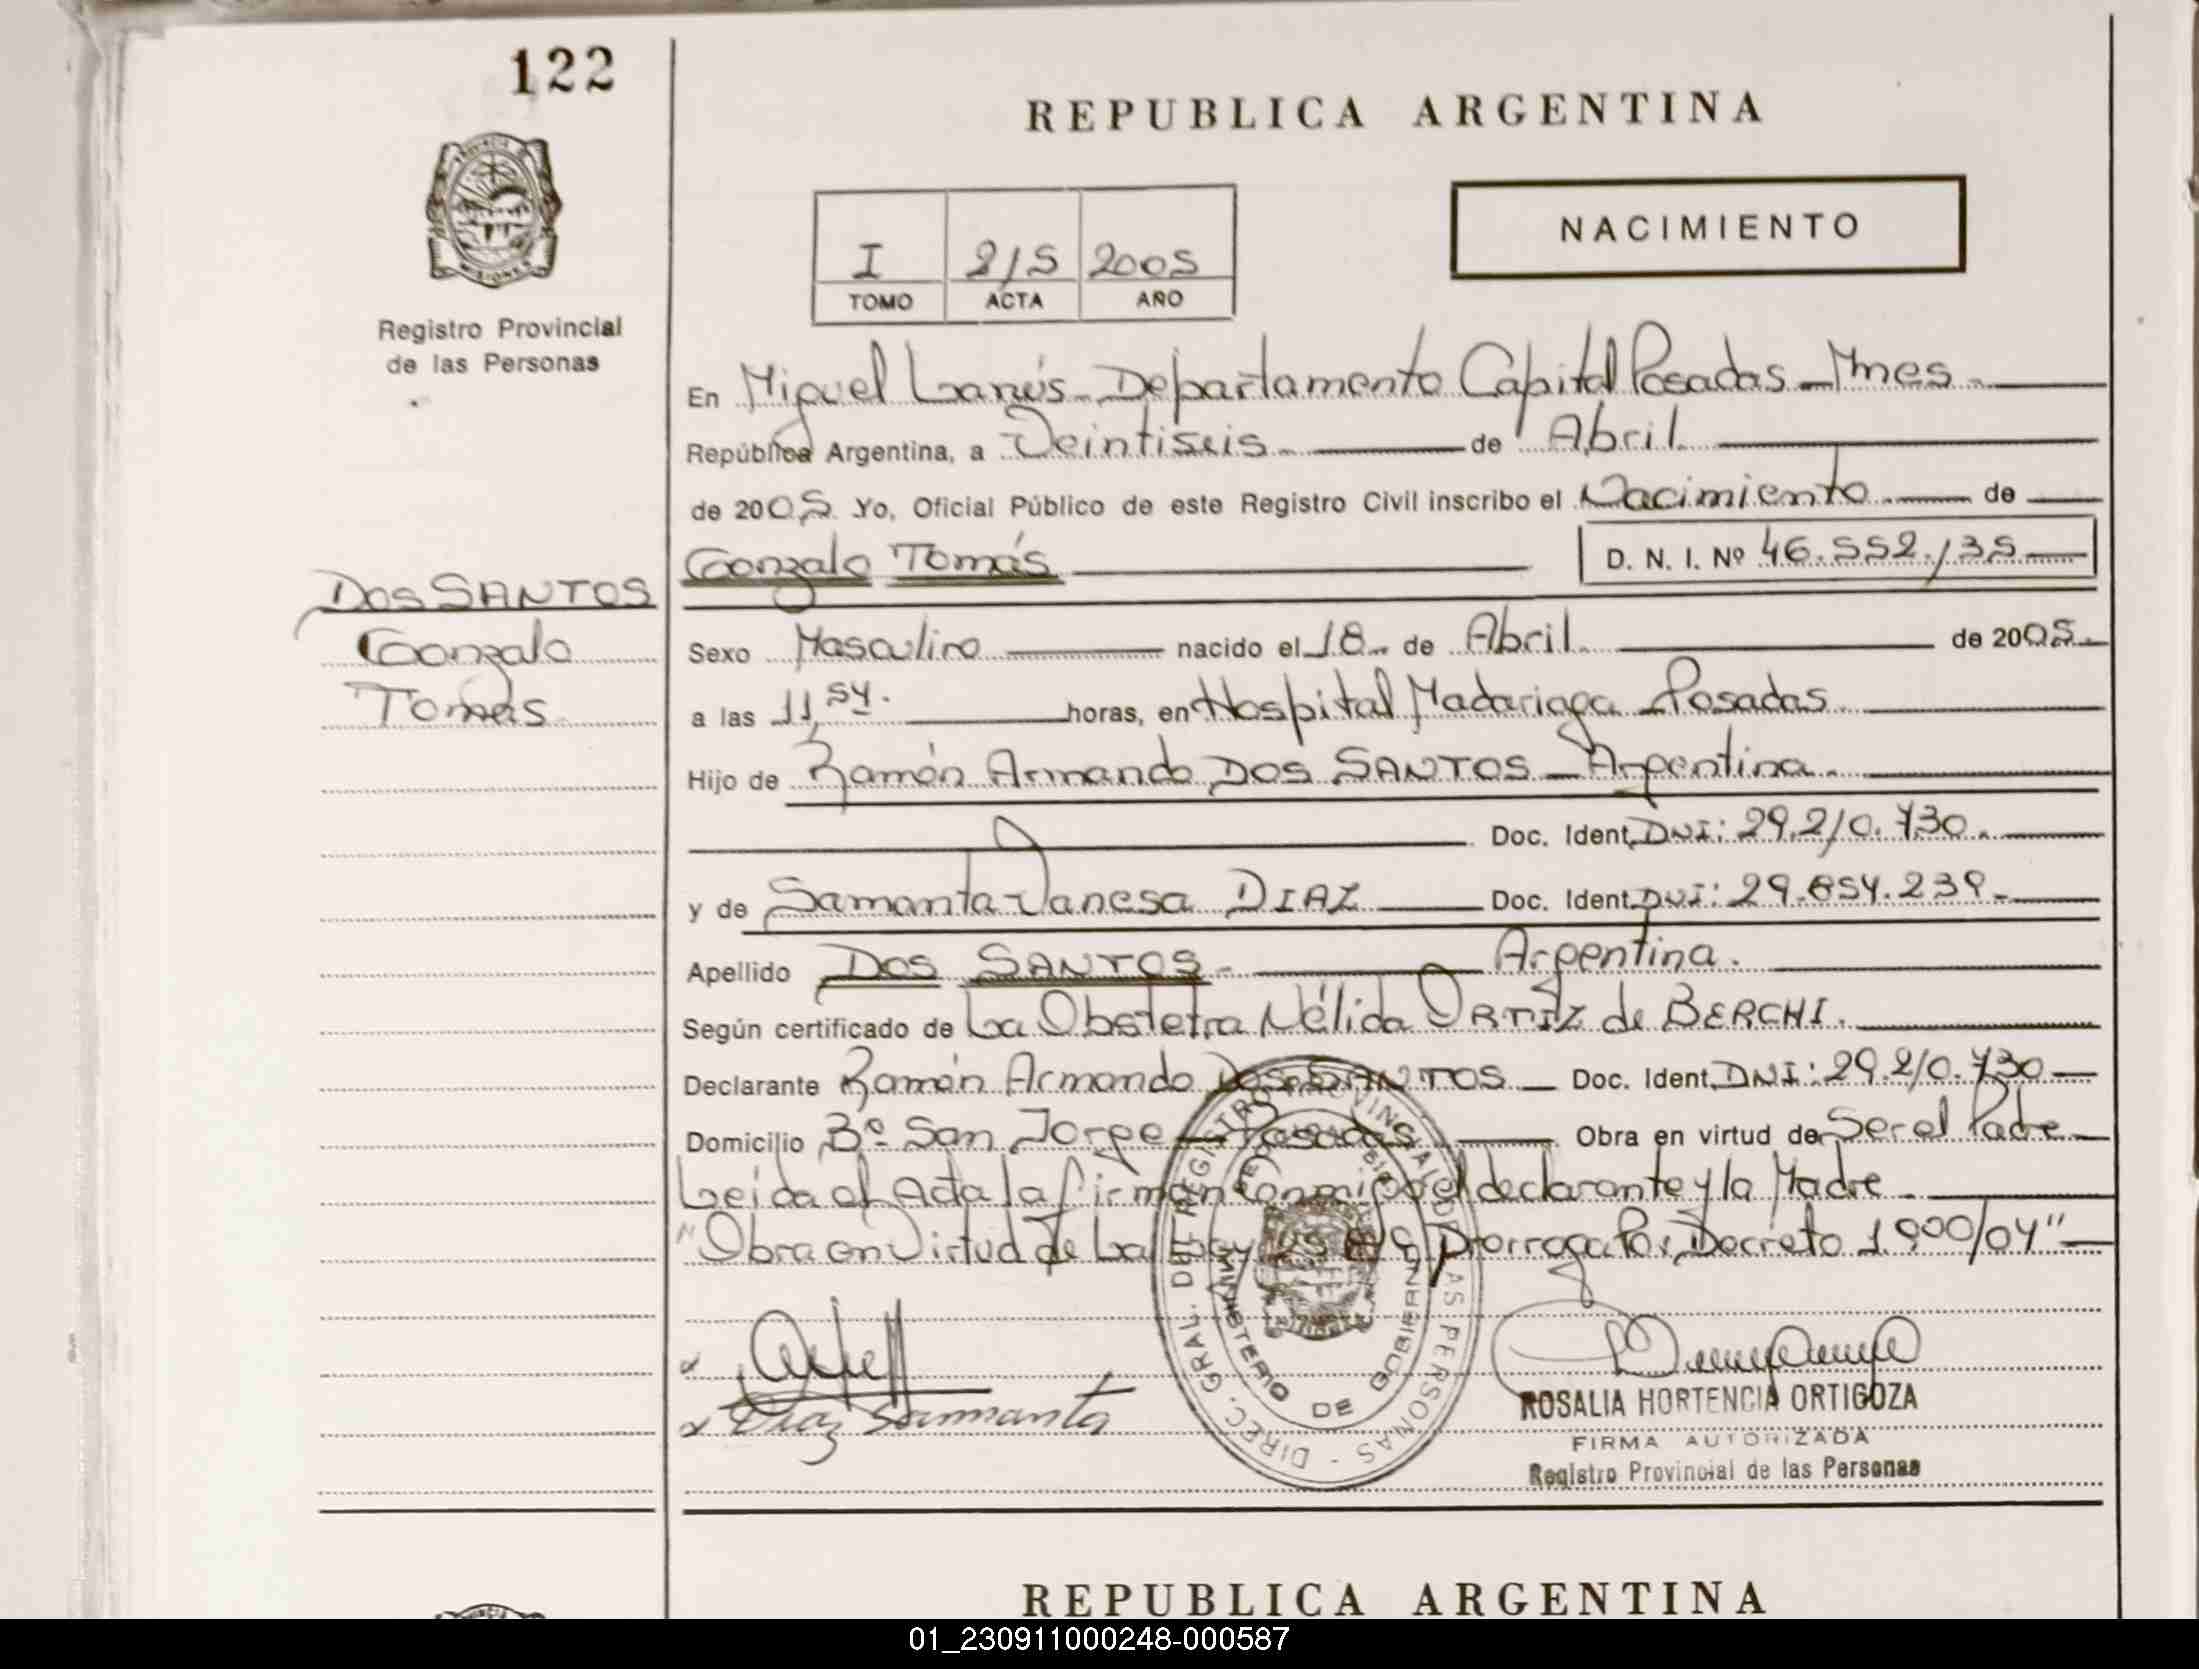 122
REPUBLICA ARGENTINA
PROVINCIA DE
MISIONES
Registro Provincial
de las Personas
NACIMIENTO
I 215 2005
TOMO ACTA AÑO
En Miguel Lanús - Departamento Capital Posadas - Mnes -
República Argentina, a Veintiseis de Abril
de 2005 Yo, Oficial Público de este Registro Civil inscribo el Nacimiento de
Gonzalo Tomás D. N. I. Nº 46.552.135
DOS SANTOS
Gonzalo
Tomás
Sexo Masculino nacido el 18 de Abril de 2005
a las 11,54. horas, en Hospital Madariaga - Posadas
Hijo de Ramón Armando DOS SANTOS - Argentina
Doc. Ident. DNI: 29.210.730.
y de Samanta Vanesa DIAZ Doc. Ident. DNI: 29.854.239.-
Apellido DOS SANTOS - Argentina.
Según certificado de La Obstetra Nélida ORTIZ de BERCHI.
Declarante Ramón Armando DOS SANTOS - Doc. Ident. DNI: 29.210.730
Domicilio Bº San Jorge - Posadas Obra en virtud de Ser el Padre
Leida el Acta la firman conmigo el declarante y la Madre
"Obra en Virtud de La Ley Prorroga Por Decreto 1.900/04"
Diaz Samanta
DIREC. GRAL. DEL REGISTRO PROVINCIAL DE LAS PERSONAS
MINISTERIO DE GOBIERNO
ROSALIA HORTENCIA ORTIGOZA
FIRMA AUTORIZADA
Registro Provincial de las Personas
REPUBLICA ARGENTINA
01_230911000248-000587